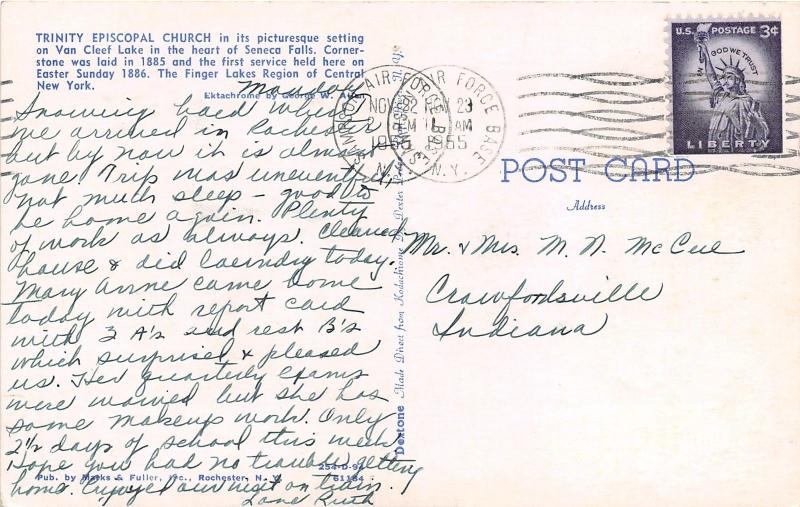 TRINITY EPISCOPAL CHURCH in its picturesque setting
on Van Cleef Lake in the heart of Seneca Falls. Corner-
stone was laid in 1885 and the first service held here on
Easter Sunday 1886. The Finger Lakes Region of Central
New York.
Ektachrome by George W. Allen
Monday
Snowing hard when
we arrived in Rochester
but by now it is almost
gone. Trip was uneventful,
not much sleep - good to
be home again. Plenty
of work as always. Cleaned
house & did laundry today.
Mary Anne came home
today with report card
with 3 A's and rest B's
which surprised & pleased
us. Her quarterly exams
were waived but she has
some makeup work. Only
2½ days of school this week
Hope you had no trouble getting
home. Enjoyed our visit on train.
Love Ruth
254-D-94
Pub. by Marks & Fuller, Inc., Rochester, N. Y.
61184
Dextone Made Direct from Kodachrome by Dexter
SAMPSON AIR FORCE BASE
NOV 22
1955
N.Y.
AIR FORCE BASE
NOV 23
AM
1955
N.Y.
U.S. POSTAGE 3¢
IN GOD WE TRUST
LIBERTY
POST CARD
Address
Mr. & Mrs. M. N. McCue
Crawfordsville
Indiana